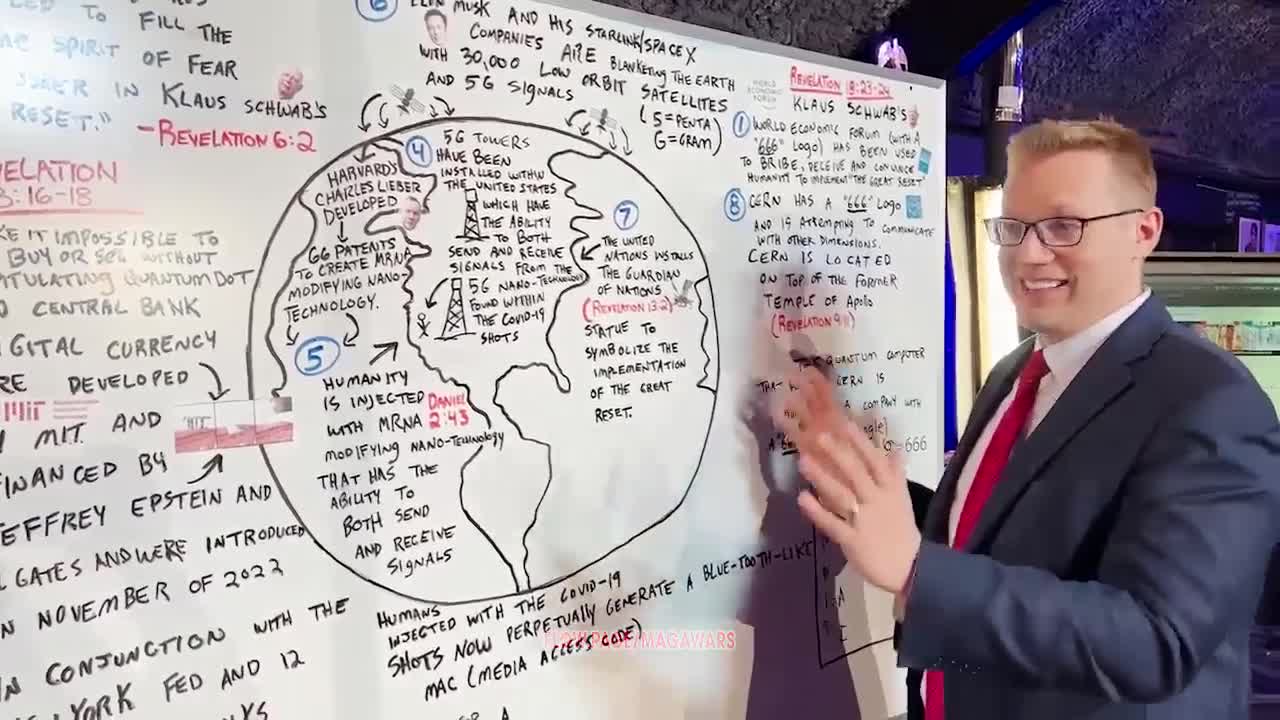 TO FILL THE
SPIRIT OF FEAR
IN KLAUS SCHWAB'S
RESET."
-REVELATION 6:2
VELATION
3:16-18
KE IT IMPOSSIBLE TO
BUY OR SELL WITHOUT
QUANTUM DOT
CENTRAL BANK
GITAL CURRENCY
RE DEVELOPED
MIT
MIT AND
FINANCED BY
JEFFREY EPSTEIN AND
GATES AND WERE INTRODUCED
NOVEMBER OF 2022
CONJUNCTION WITH THE
YORK FED AND 12
6
ELON MUSK AND HIS STARLINK/SPACE X
COMPANIES ARE BLANKETING THE EARTH
WITH 30,000 LOW ORBIT SATELLITES
AND 5G SIGNALS
(5=PENTA
G=GRAM)
HARVARD'S
CHARLES LIEBER
DEVELOPED
66 PATENTS
TO CREATE MRNA
MODIFYING NANO-
TECHNOLOGY.
4
5G TOWERS
HAVE BEEN
INSTALLED WITHIN
THE UNITED STATES
WHICH HAVE
THE ABILITY
TO BOTH
SEND AND RECEIVE
SIGNALS FROM THE
5G NANO-TECHNOLOGY
FOUND WITHIN
THE COVID-19
SHOTS
5
HUMANITY
IS INJECTED DANIEL
WITH MRNA 2:43
MODIFYING NANO-TECHNOLOGY
THAT HAS THE
ABILITY TO
BOTH SEND
AND RECEIVE
SIGNALS
7
THE UNITED
NATIONS INSTALLS
THE GUARDIAN
OF NATIONS
(REVELATION 13:2)
STATUE TO
SYMBOLIZE THE
IMPLEMENTATION
OF THE GREAT
RESET.
HUMANS
INJECTED WITH THE COVID-19
SHOTS NOW PERPETUALLY GENERATE A BLUE-TOOTH-LIKE
MAC (MEDIA ACCESS CODE)
WORLD
ECONOMIC
FORUM
REVELATION 18:23-24
KLAUS SCHWAB'S
1
WORLD ECONOMIC FORUM (WITH A
"666" LOGO) HAS BEEN USED
TO BRIBE, DECEIVE AND CONVINCE
HUMANITY TO IMPLEMENT "THE GREAT RESET"
8
CERN HAS A "666" LOGO
AND IS ATTEMPTING TO COMMUNICATE
WITH OTHER DIMENSIONS.
CERN IS LOCATED
ON TOP OF THE FORMER
TEMPLE OF APOLO
(REVELATION 9:11)
QUANTUM COMPUTER
CERN IS
COMPANY WITH
=666
FLOWPAGE/MAGAWARS